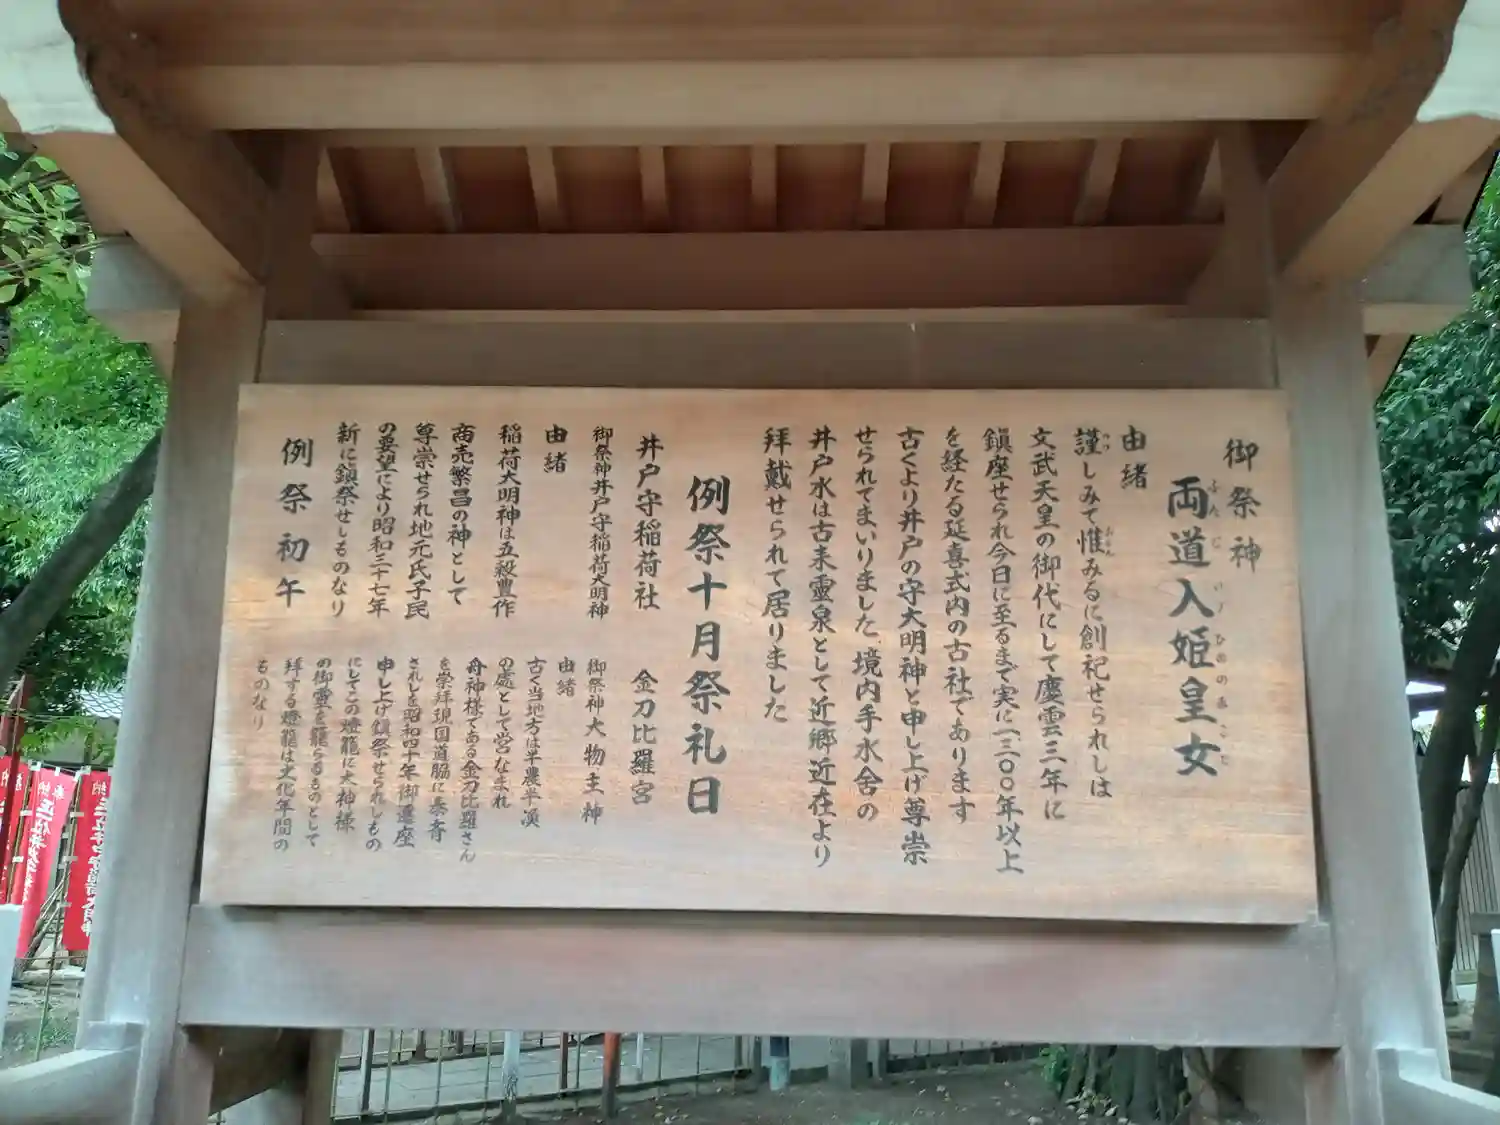 御祭神
両道入姫皇女
ふたじ いり ひめ の みこと
由緒
謹しみて惟みるに創祀せられしは
つつ おもん
文武天皇の御代にして慶雲三年に
鎮座せられ今日に至るまで実に一三〇〇年以上
を経たる延喜式内の古社であります
古くより井戸の守大明神と申し上げ尊崇
せられてまいりました、境内手水舎の
井戸水は古来霊泉として近郷近在より
拝戴せられて居りました
例祭十月祭礼日
井戸守稲荷社
御祭神井戸守稲荷大明神
由緒
稲荷大明神は五穀豊作
商売繁昌の神として
尊崇せられ地元氏子民
の要望により昭和三十七年
新に鎮祭せしものなり
例祭初午
金刀比羅宮
御祭神大物主神
由緒
古く当地方は半農半漁
の處として営なまれ
舟神様である金刀比羅さん
を崇拝現国道脇に奉斉
されしを昭和四十年御遷座
申し上げ鎮祭せられしもの
にしてこの燈籠に大神様
の御霊を籠らるものとして
拝する燈籠は文化年間の
ものなり